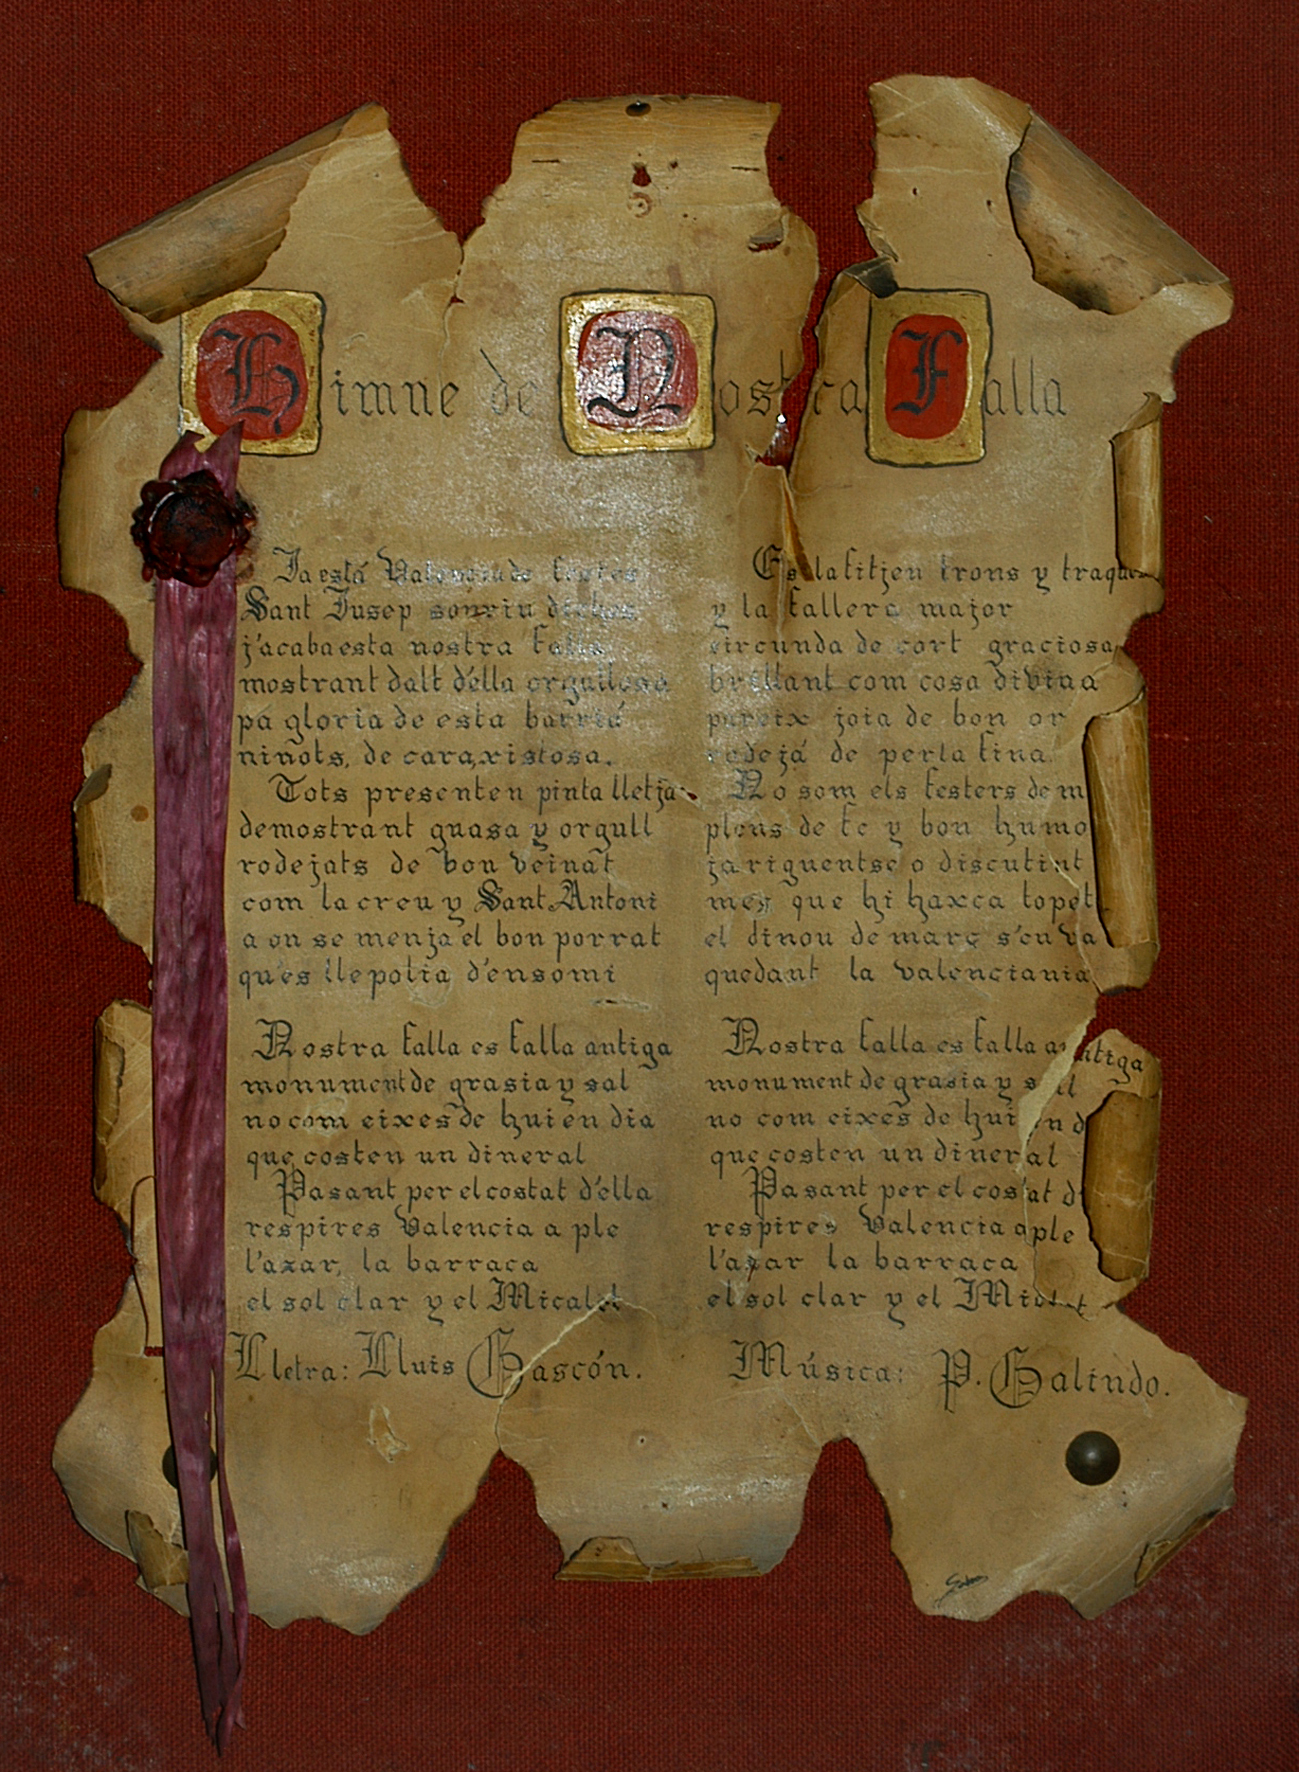 Himne de Nostra Falla
Ja está Valencia de festes
Sant Jusep sonriu dichos
j'acaba esta nostra falla
mostrant dalt d'ella orgullosa
pa gloria de esta barriá
niñots, de cara xistosa.
Tots presenten pinta lletja
demostrant guasa y orgull
rodejats de bon veinat
com la creu y Sant Antoni
a on se menja el bon porrat
qu'es llepolia d'ensomi
Nostra falla es falla antiga
monument de grasia y sal
no com eixes de hui en dia
que costen un dineral
Pasant per el costat d'ella
respires Valencia a ple
l'azar, la barraca
el sol clar y el Micalet
Lletra: Lluis Gascón.
Es la fitjeu trons y traques
y la fallera major
circunda de cort graciosa
brillant com cosa divina
pareix joia de bon or
rodejá de perla fina.
No som els festers de m
plens de fe y bon humo
ja riguentse o discutint
mes que hi haxca topet
el dinou de març s'en va
quedant la valenciania
Nostra falla es falla antiga
monument de grasia y sal
no com eixes de hui en d
que costen un dineral
Pasant per el costat d
respires Valencia a ple
l'azar la barraca
el sol clar y el
Música: P. Galindo.